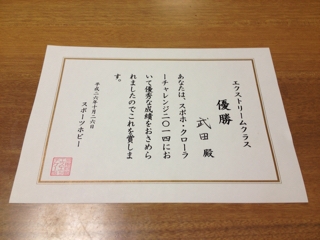 エクストリームクラス
優勝
武田 殿
あなたは、スポホ・クローラ
ーチャレンジ二〇一四にお
いて優秀な成績をおさめら
れましたのでこれを賞しま
す。
平成二六年十月二六日
スポーツホビー